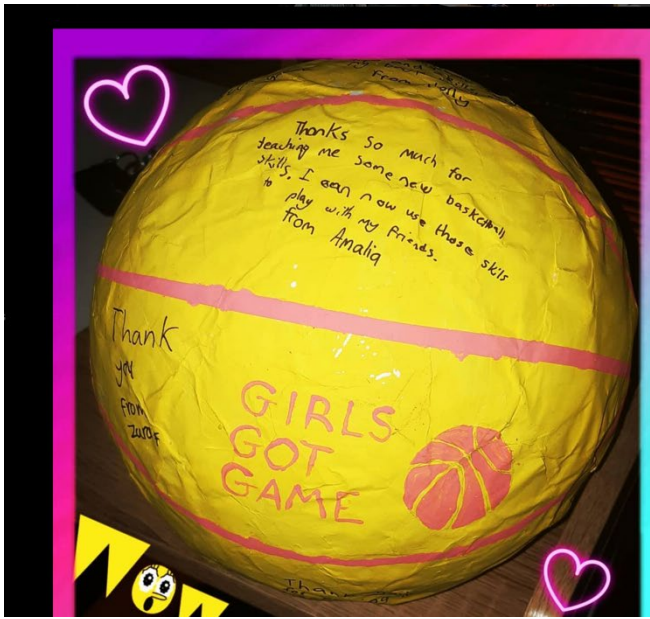 From Holly
Thanks so much for
teaching me some new basketball
skills. I can now use those skils
to play with my friends.
from Amalia
Thank
you
from
GIRLS
GOT
GAME
WOW